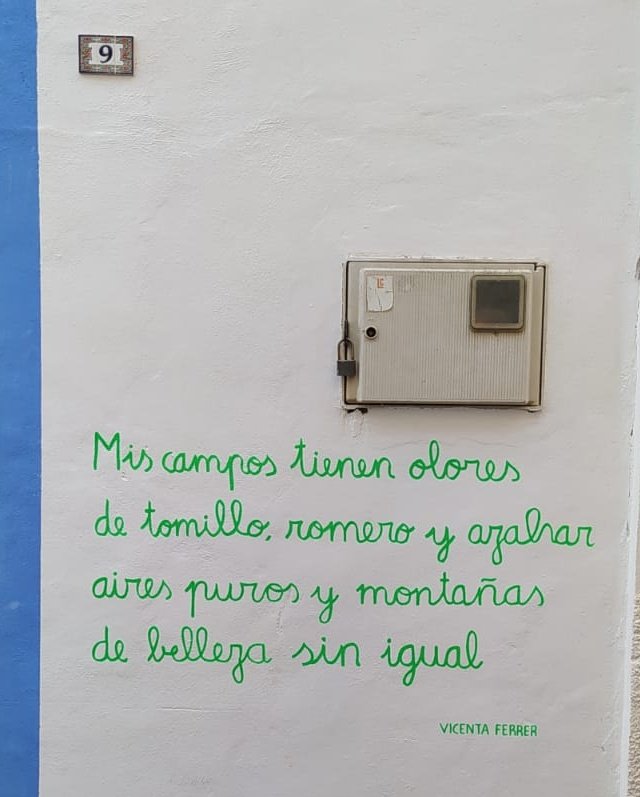 9
Mis campos tienen olores
de tomillo, romero y azahar
aires puros y montañas
de belleza sin igual
VICENTA FERRER